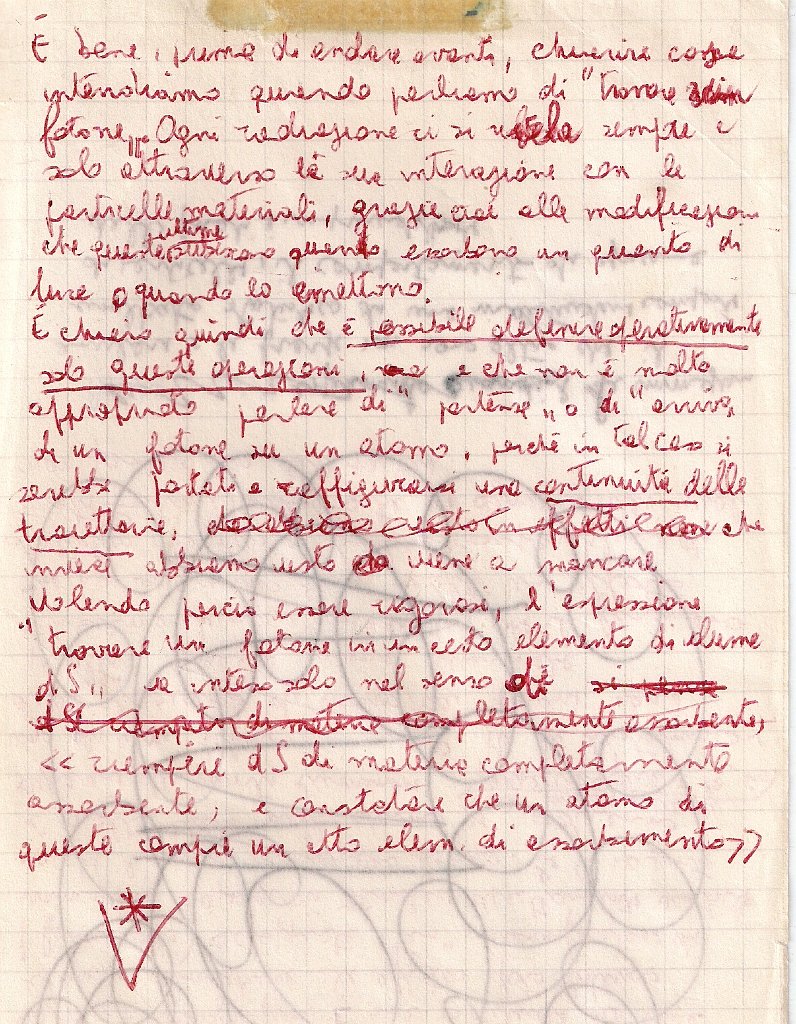 É bene, prima di andare avanti, chiarire cosa
intendiamo quando parliamo di "trovare un
fotone„. Ogni radiazione ci si rivela sempre e
solo attraverso la sua interazione con le
particelle materiali, grazie cioè alle modificazioni
che queste ultime subiscono quando assorbono un quanto di
luce o quando lo emettono.
É chiaro quindi che è possibile definire operativamente
solo queste operazioni, e che non è molto
appropriato parlare di "partenza„ o di "arrivo„
di un fotone su un atomo, perché in tal caso si
sarebbe portati a raffigurarsi una continuità delle
traiettorie, che
invece abbiamo visto viene a mancare
Volendo perciò essere rigorosi, l'espressione
"trovare un fotone in un certo elemento di volume
dS„ va inteso solo nel senso di
dS riempito di materia completamente assorbente,
<< riempire dS di materia completamente
assorbente, e constatare che un atomo di
questa compie un atto elem. di assorbimento>>
*